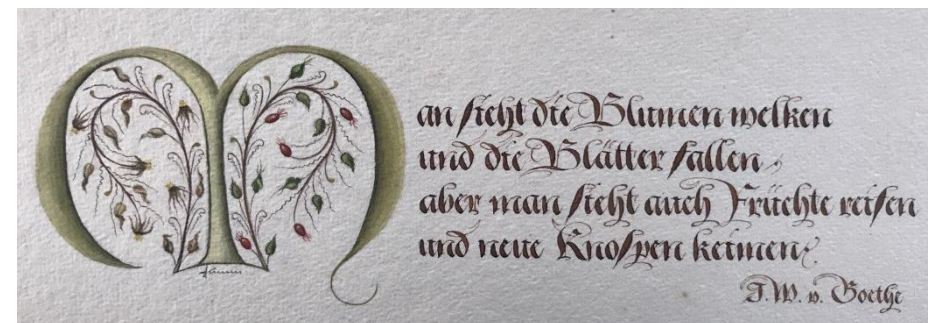 Man sieht die Blumen welken
und die Blätter fallen,
aber man sieht auch Früchte reifen
und neue Knospen keimen.
J. W. v. Goethe